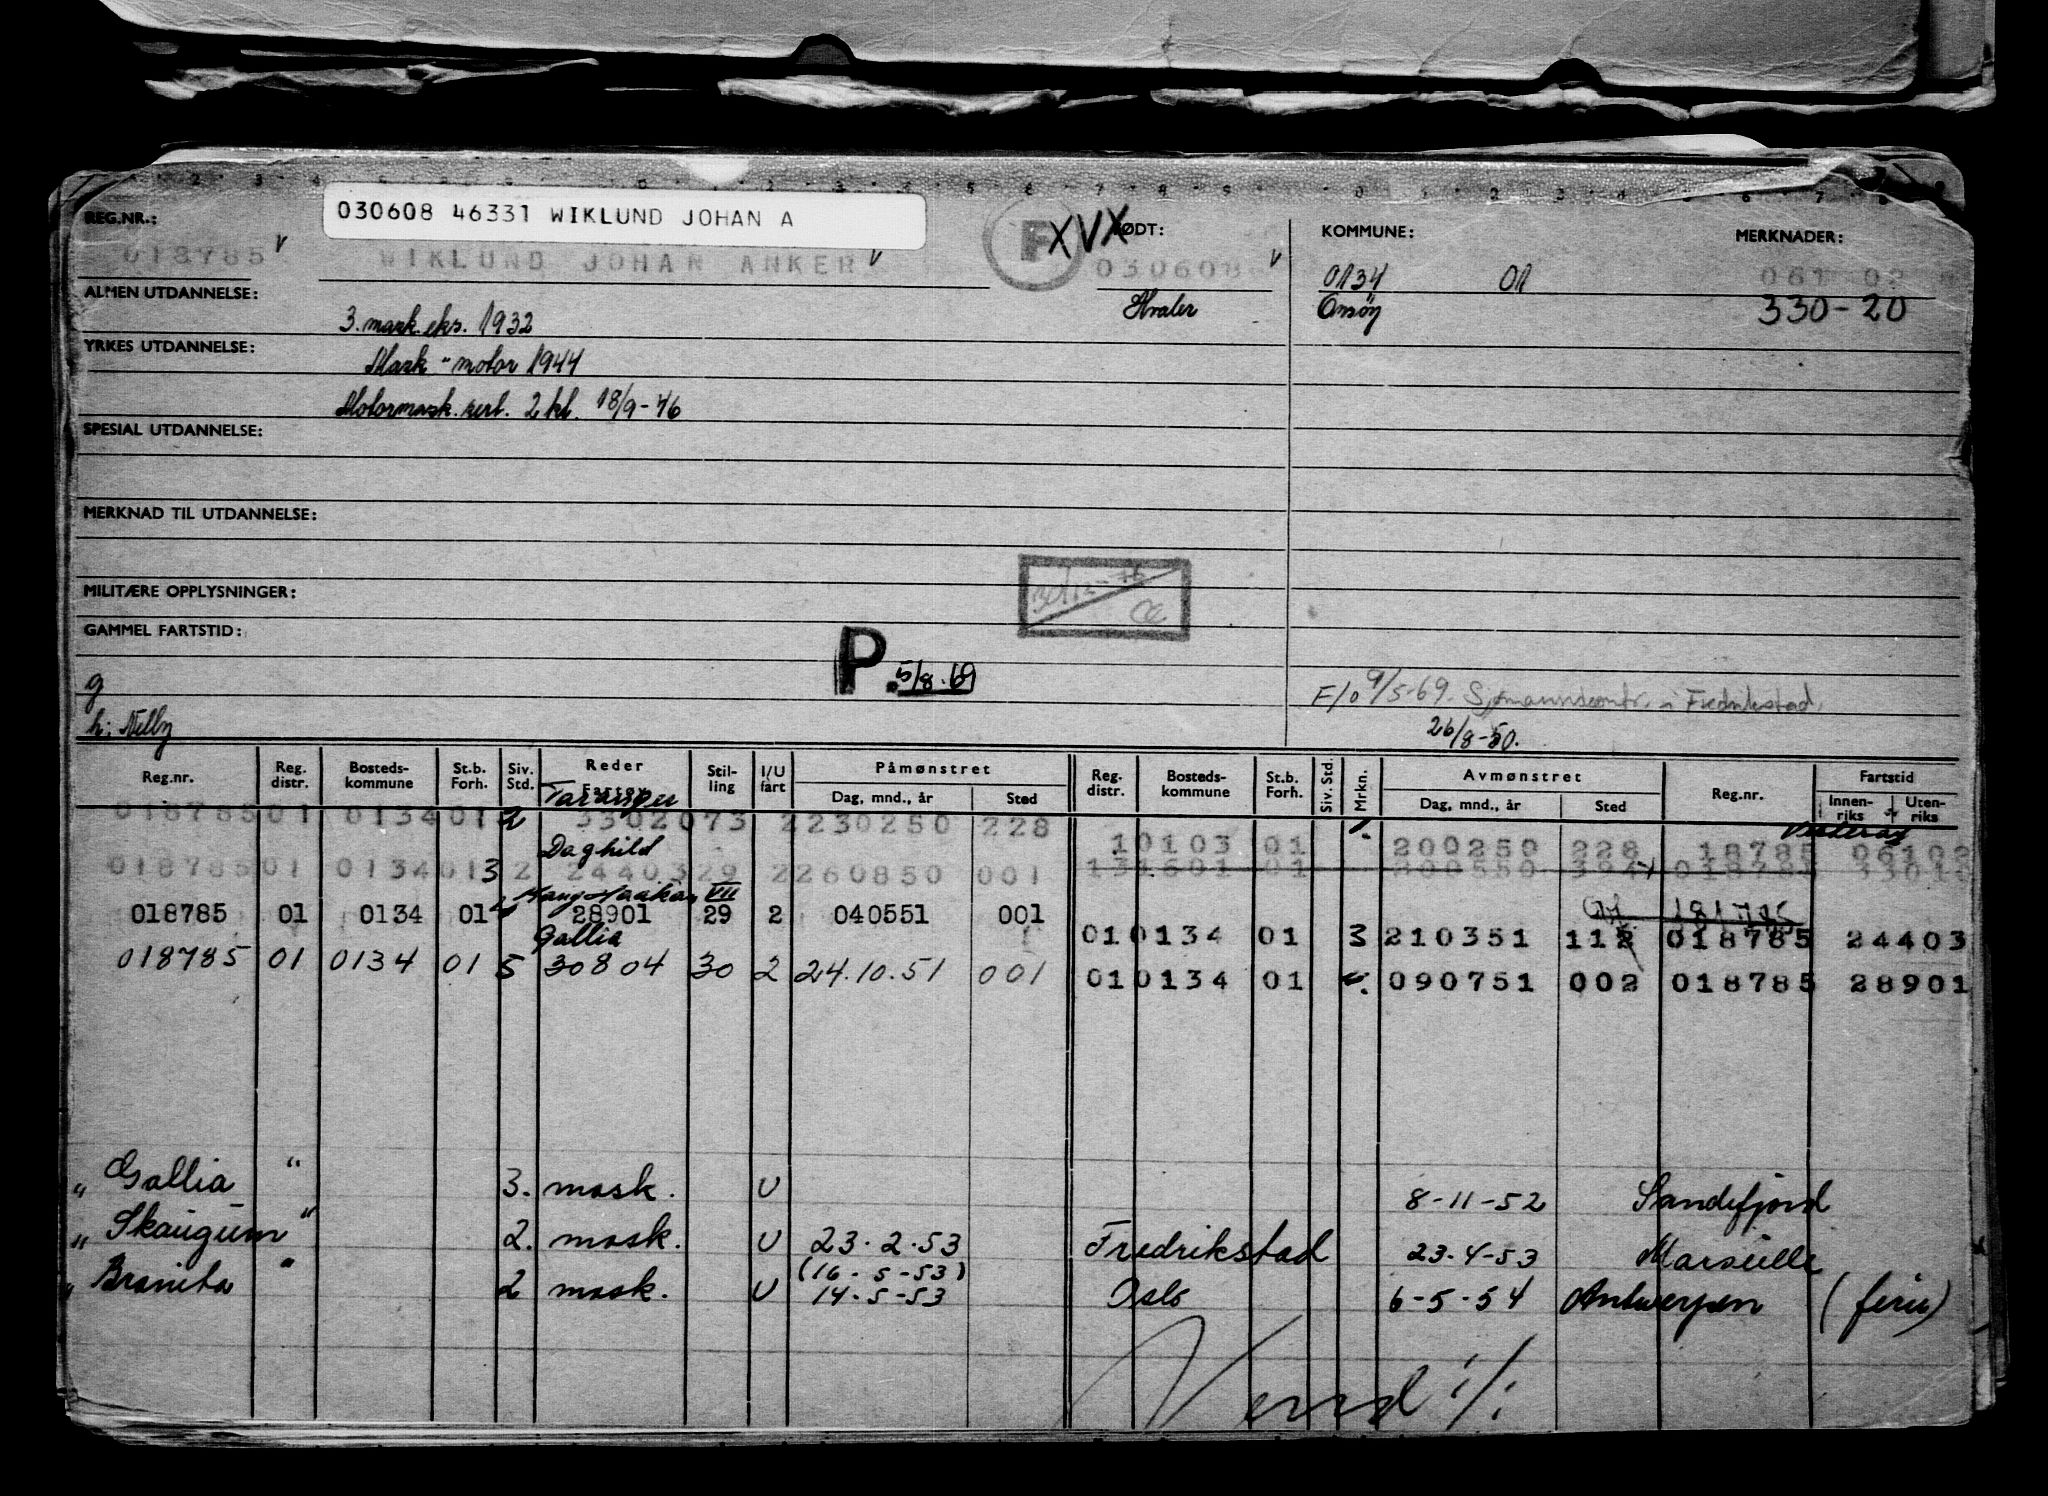 030608 46331 WIKLUND JOHAN A
REG.NR.: FØDT: KOMMUNE: MERKNADER:
018785 v WIKLUND JOHAN ANKER v F XVX 030608 v 0134 01 061 02
ALMEN UTDANNELSE: 3. mask. eks. 1932 Hvaler Onsøy 330-20
YRKES UTDANNELSE: Mask - motor 1944
Motormask. sert. 2 kl. 18/9-46
SPESIAL UTDANNELSE:
MERKNAD TIL UTDANNELSE:
MILITÆRE OPPLYSNINGER:
GAMMEL FARTSTID:
P. 5/8.69
g F/o 9/5-69. Sjømannskontr. i Fredrikstad.
h: Nelly 26/8-50.
Reg.nr. Reg. distr. Bosteds-kommune St.b. Forh. Siv. Std. Reder Stil-ling I/U fart Påmønstret Reg. distr. Bosteds-kommune St.b. Forh. Siv. Std. Mrkn. Avmønstret Reg.nr. Fartstid
Dag, mnd., år Sted Dag, mnd., år Sted Innen-riks Uten-riks
018785 01 0134 01 2 33020 73 2 230250 228
Daghild 10103 01 200250 228 18785 06102
018785 01 0134 01 3 2 24403 29 2 260850 001 131601 01 018785 33010
Haakon VII
018785 01 0134 01 28901 29 2 040551 001
Gallia 01 0134 01 3 210351 112 018785 24403
018785 01 0134 01 5 30804 30 2 24.10.51 001
01 0134 01 090751 002 018785 28901
" Gallia " 3. mask. U 8-11-52 Sandefjord
" Skaugum " 2. mask. U 23.2.53 Fredrikstad 23.4-53 Marseille
(16-5-53)
" Branita " 2 mask. U 14-5-53 Oslo 6-5-54 Antwerpen (ferie)
Vend ./.